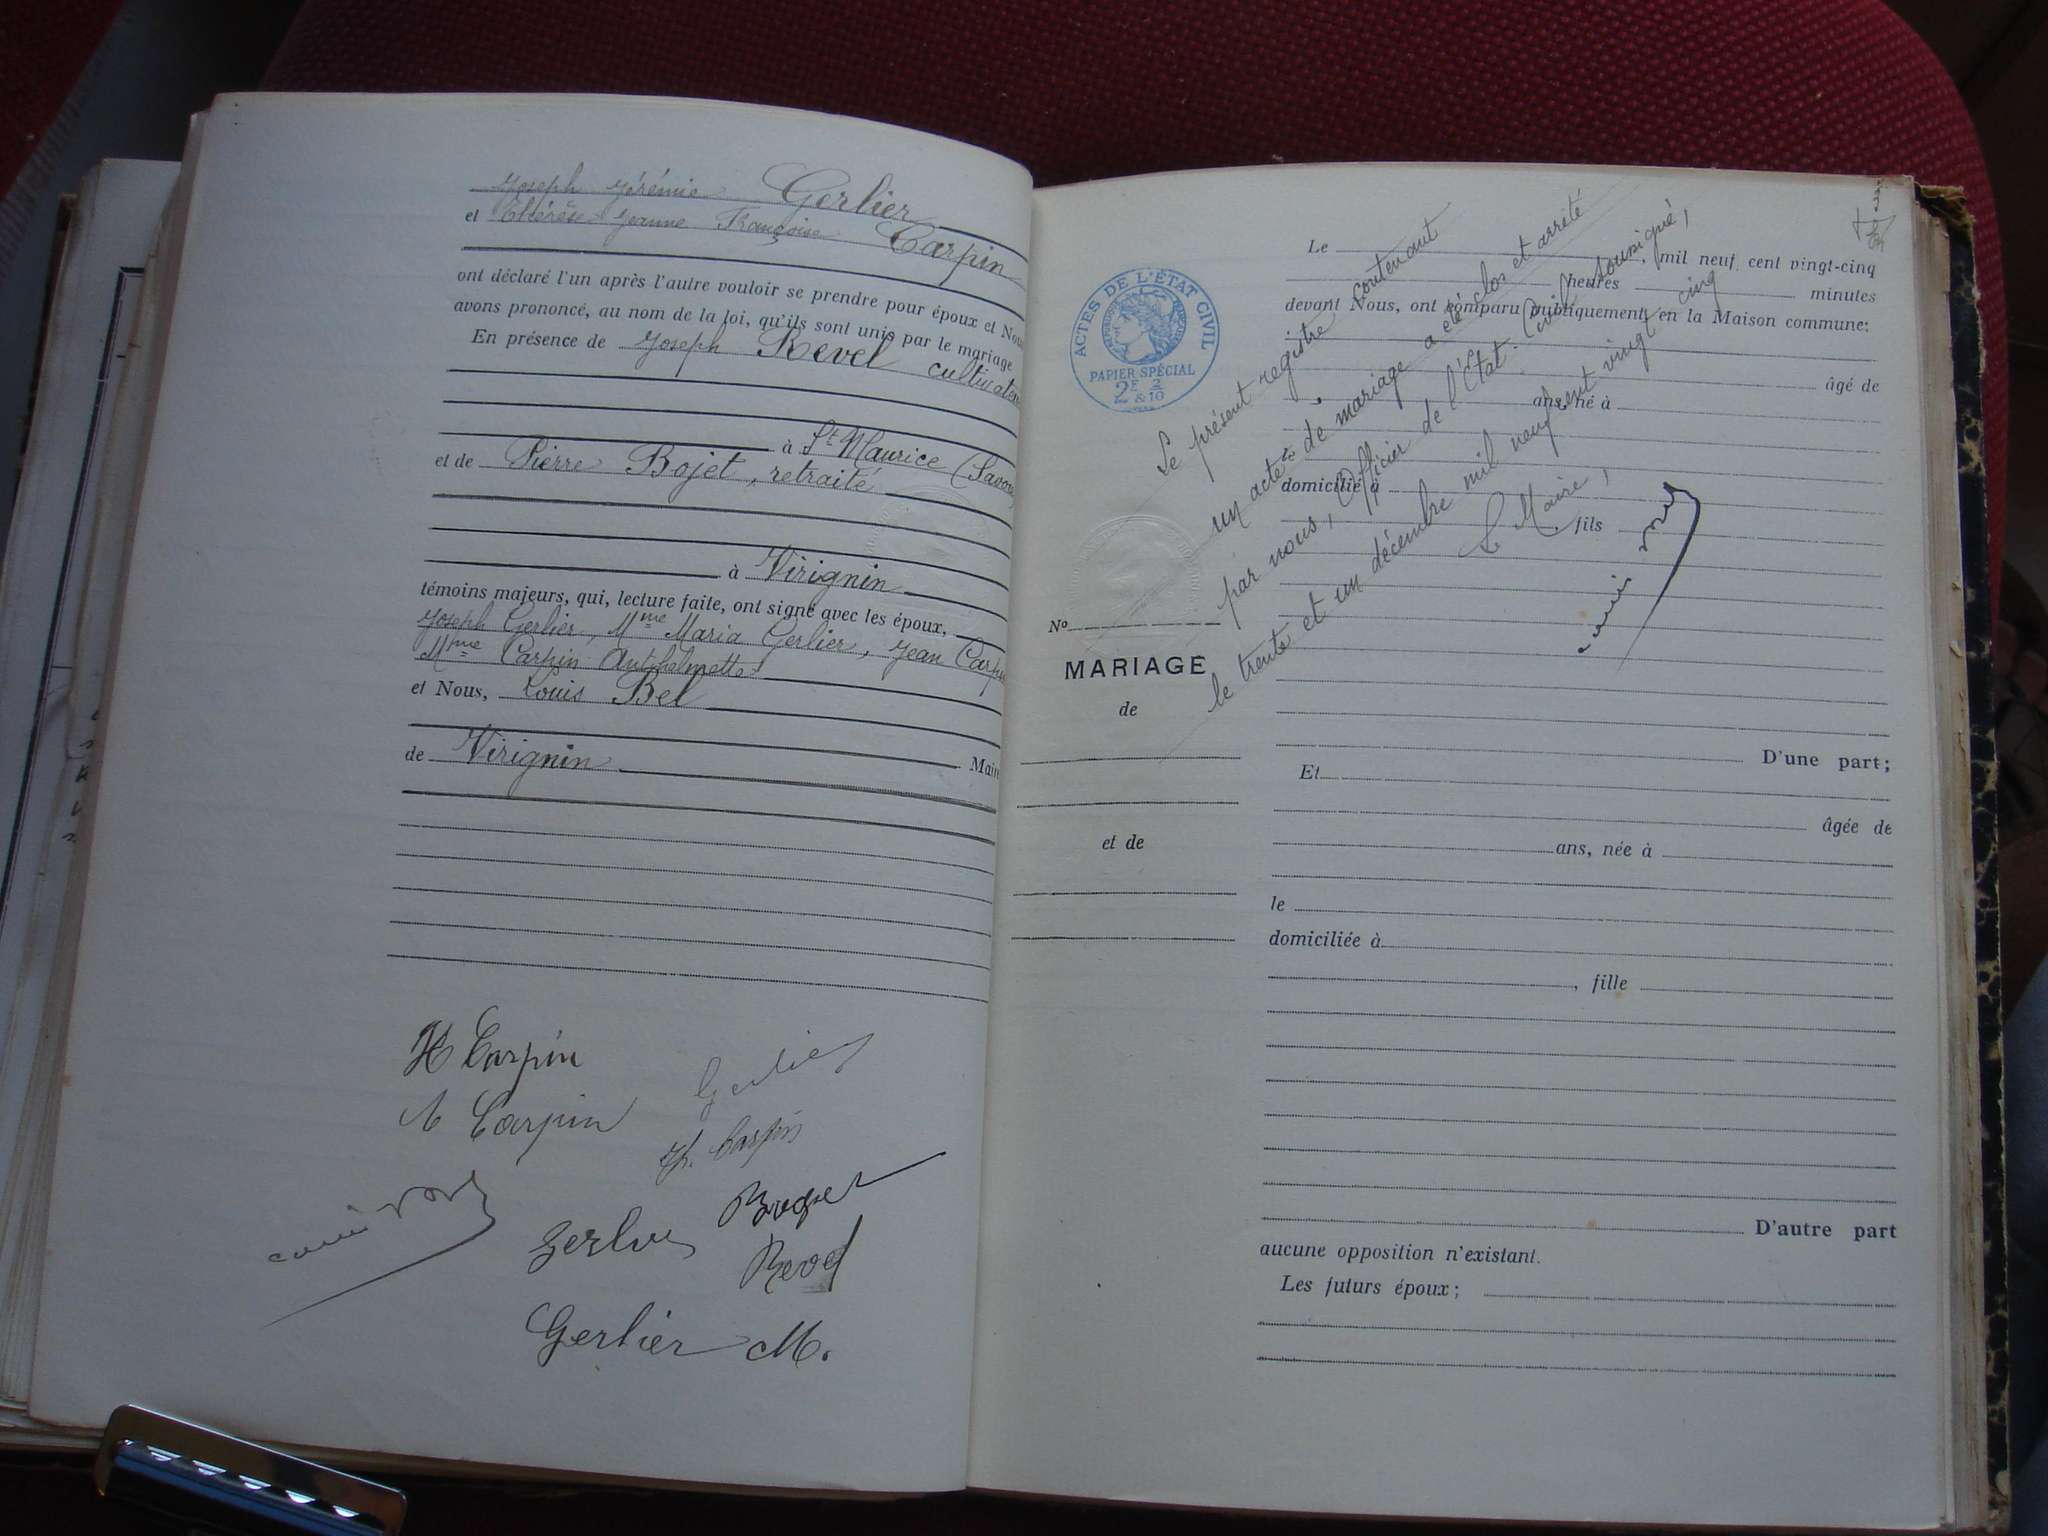 Joseph Jérémie Gerlier
et Thérèse Jeanne Françoise Carpin
ont déclaré l'un après l'autre vouloir se prendre pour époux et Nous
avons prononcé, au nom de la loi, qu'ils sont unis par le mariage
En présence de Joseph Revel cultivateu
à St Maurice (Savoie)
et de Pierre Bojet, retraité
à Virignin
témoins majeurs, qui, lecture faite, ont signé avec les époux,
Joseph Gerlier, Mme Maria Gerlier, Jean Carpin
Mme Carpin Anthelmette
et Nous, Louis Bel
Maire
de Virignin
H Carpin
Gerlier
A Carpin
Th. Carpin
Gerlier
Revel
Gerlier M.
ACTES DE L'ÉTAT CIVIL
PAPIER SPÉCIAL
2F 2
& 10
No
MARIAGE
de
et de
Le , mil neuf cent vingt-cinq
heures minutes
devant Nous, ont comparu publiquement en la Maison commune:
âgé de
ans, né à
domicilié à
fils
D'une part;
Et
âgée de
ans, née à
le
domiciliée à
, fille
D'autre part
aucune opposition n'existant.
Les futurs époux;
Le présent registre contenant
un acte de mariage a été clos et arrêté
par nous, Officier de l'État-Civil soussigné,
le trente et un décembre mil neuf cent vingt cinq
Le Maire,